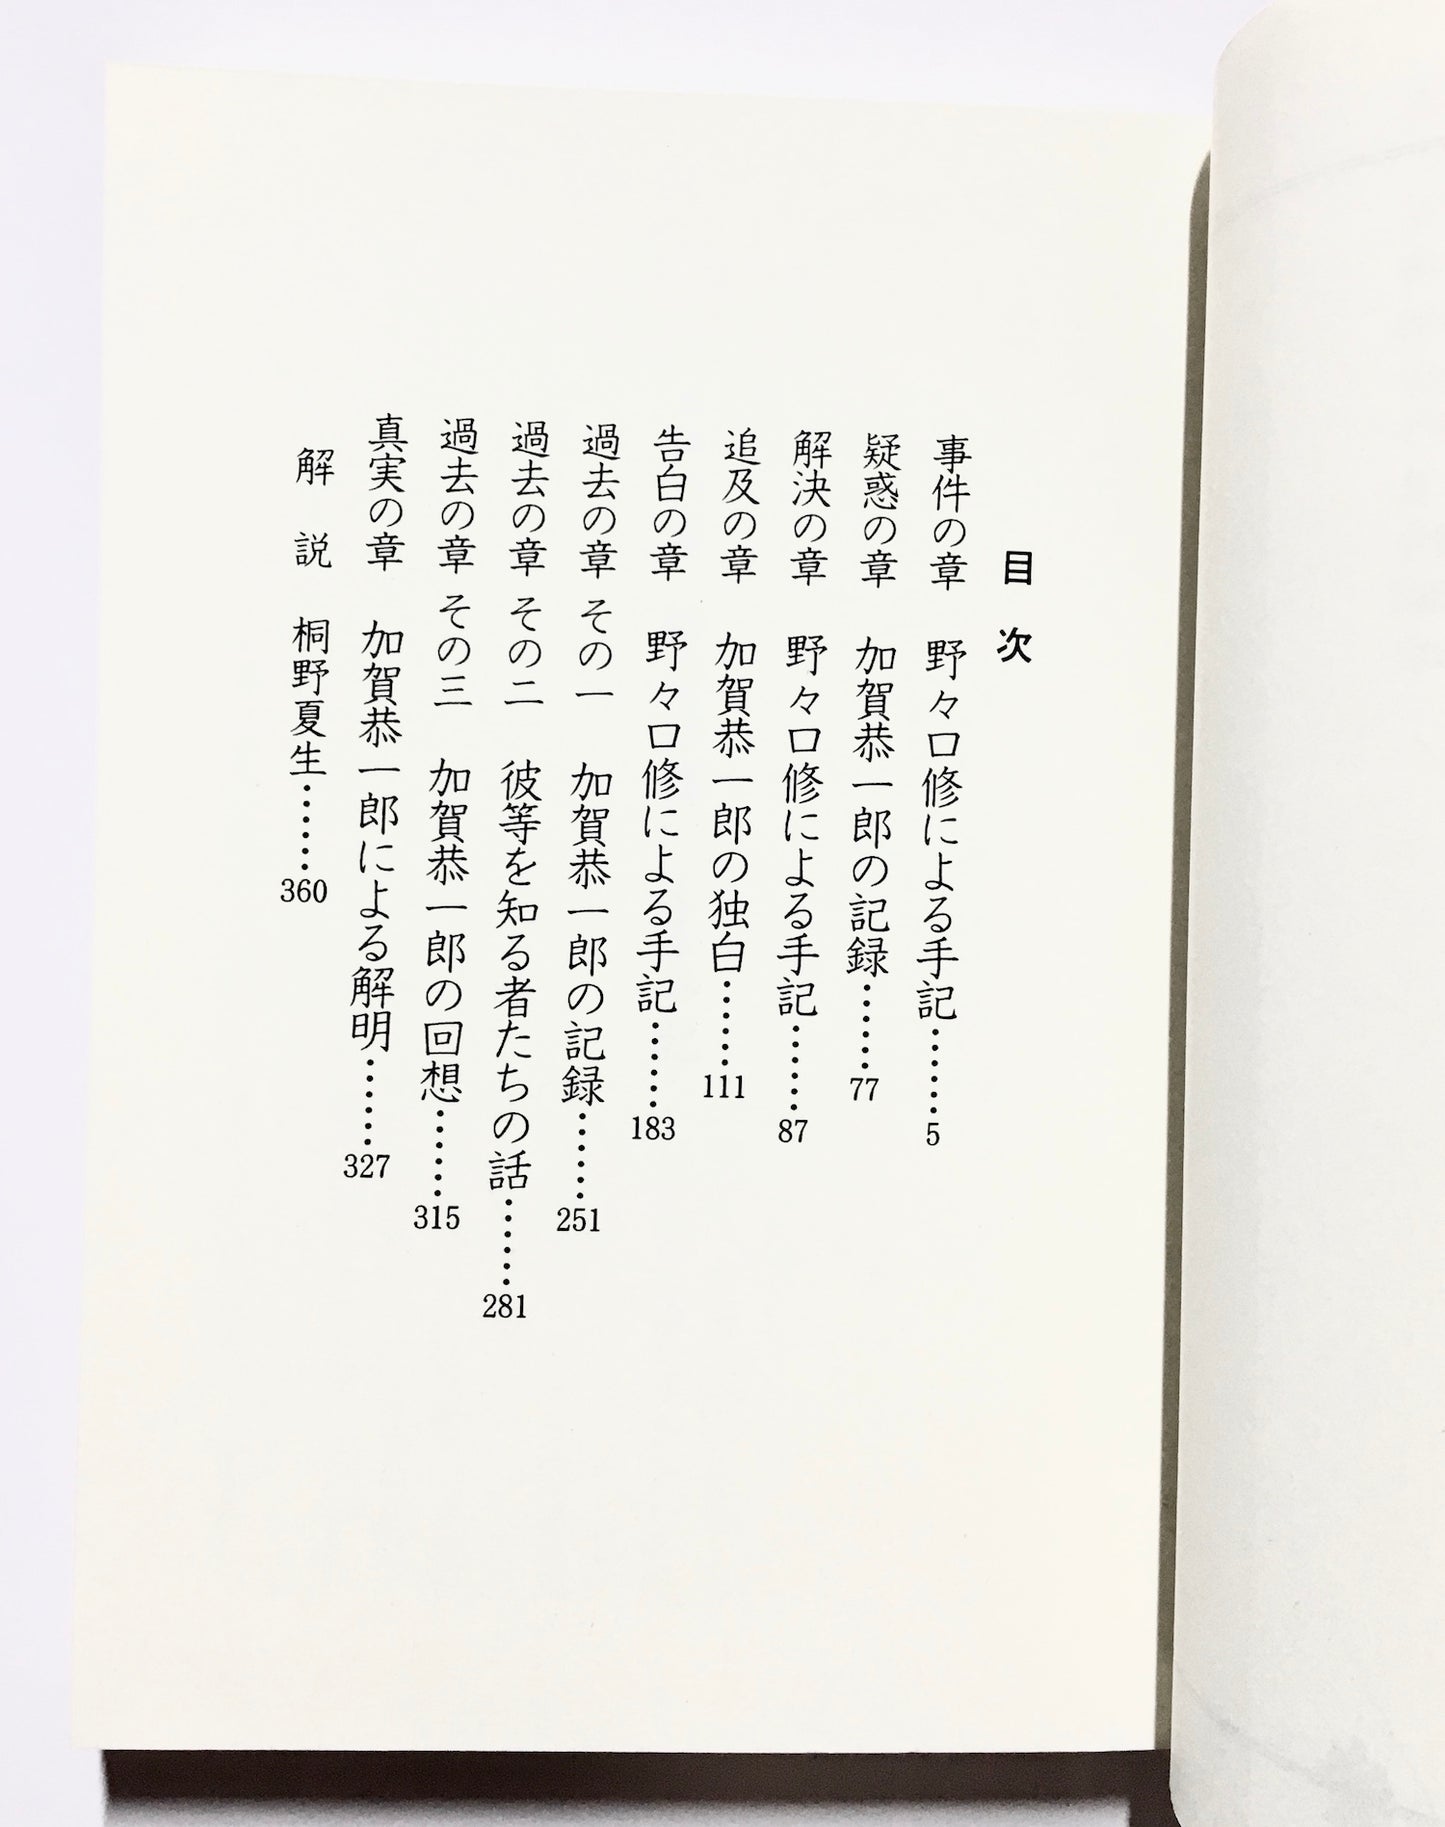 目次
事件の章 野々口修による手記……5
疑惑の章 加賀恭一郎の記録……77
解決の章 野々口修による手記……87
追及の章 加賀恭一郎の独白……111
告白の章 野々口修による手記……183
過去の章 その一 加賀恭一郎の記録……251
過去の章 その二 彼等を知る者たちの話……281
過去の章 その三 加賀恭一郎の回想……315
真実の章 加賀恭一郎による解明……327
解説 桐野夏生……360